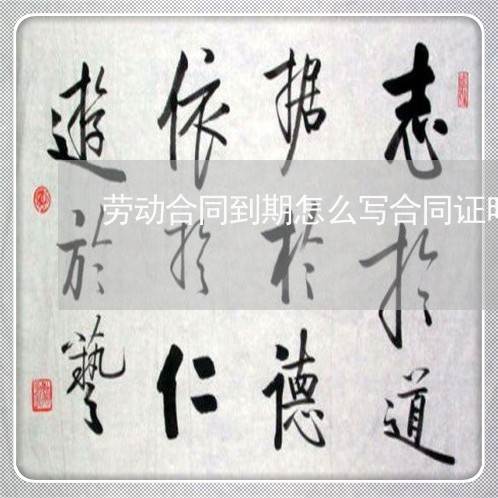 志於道
据於德
依於仁
遊於藝
劳动合同到期怎么写合同证